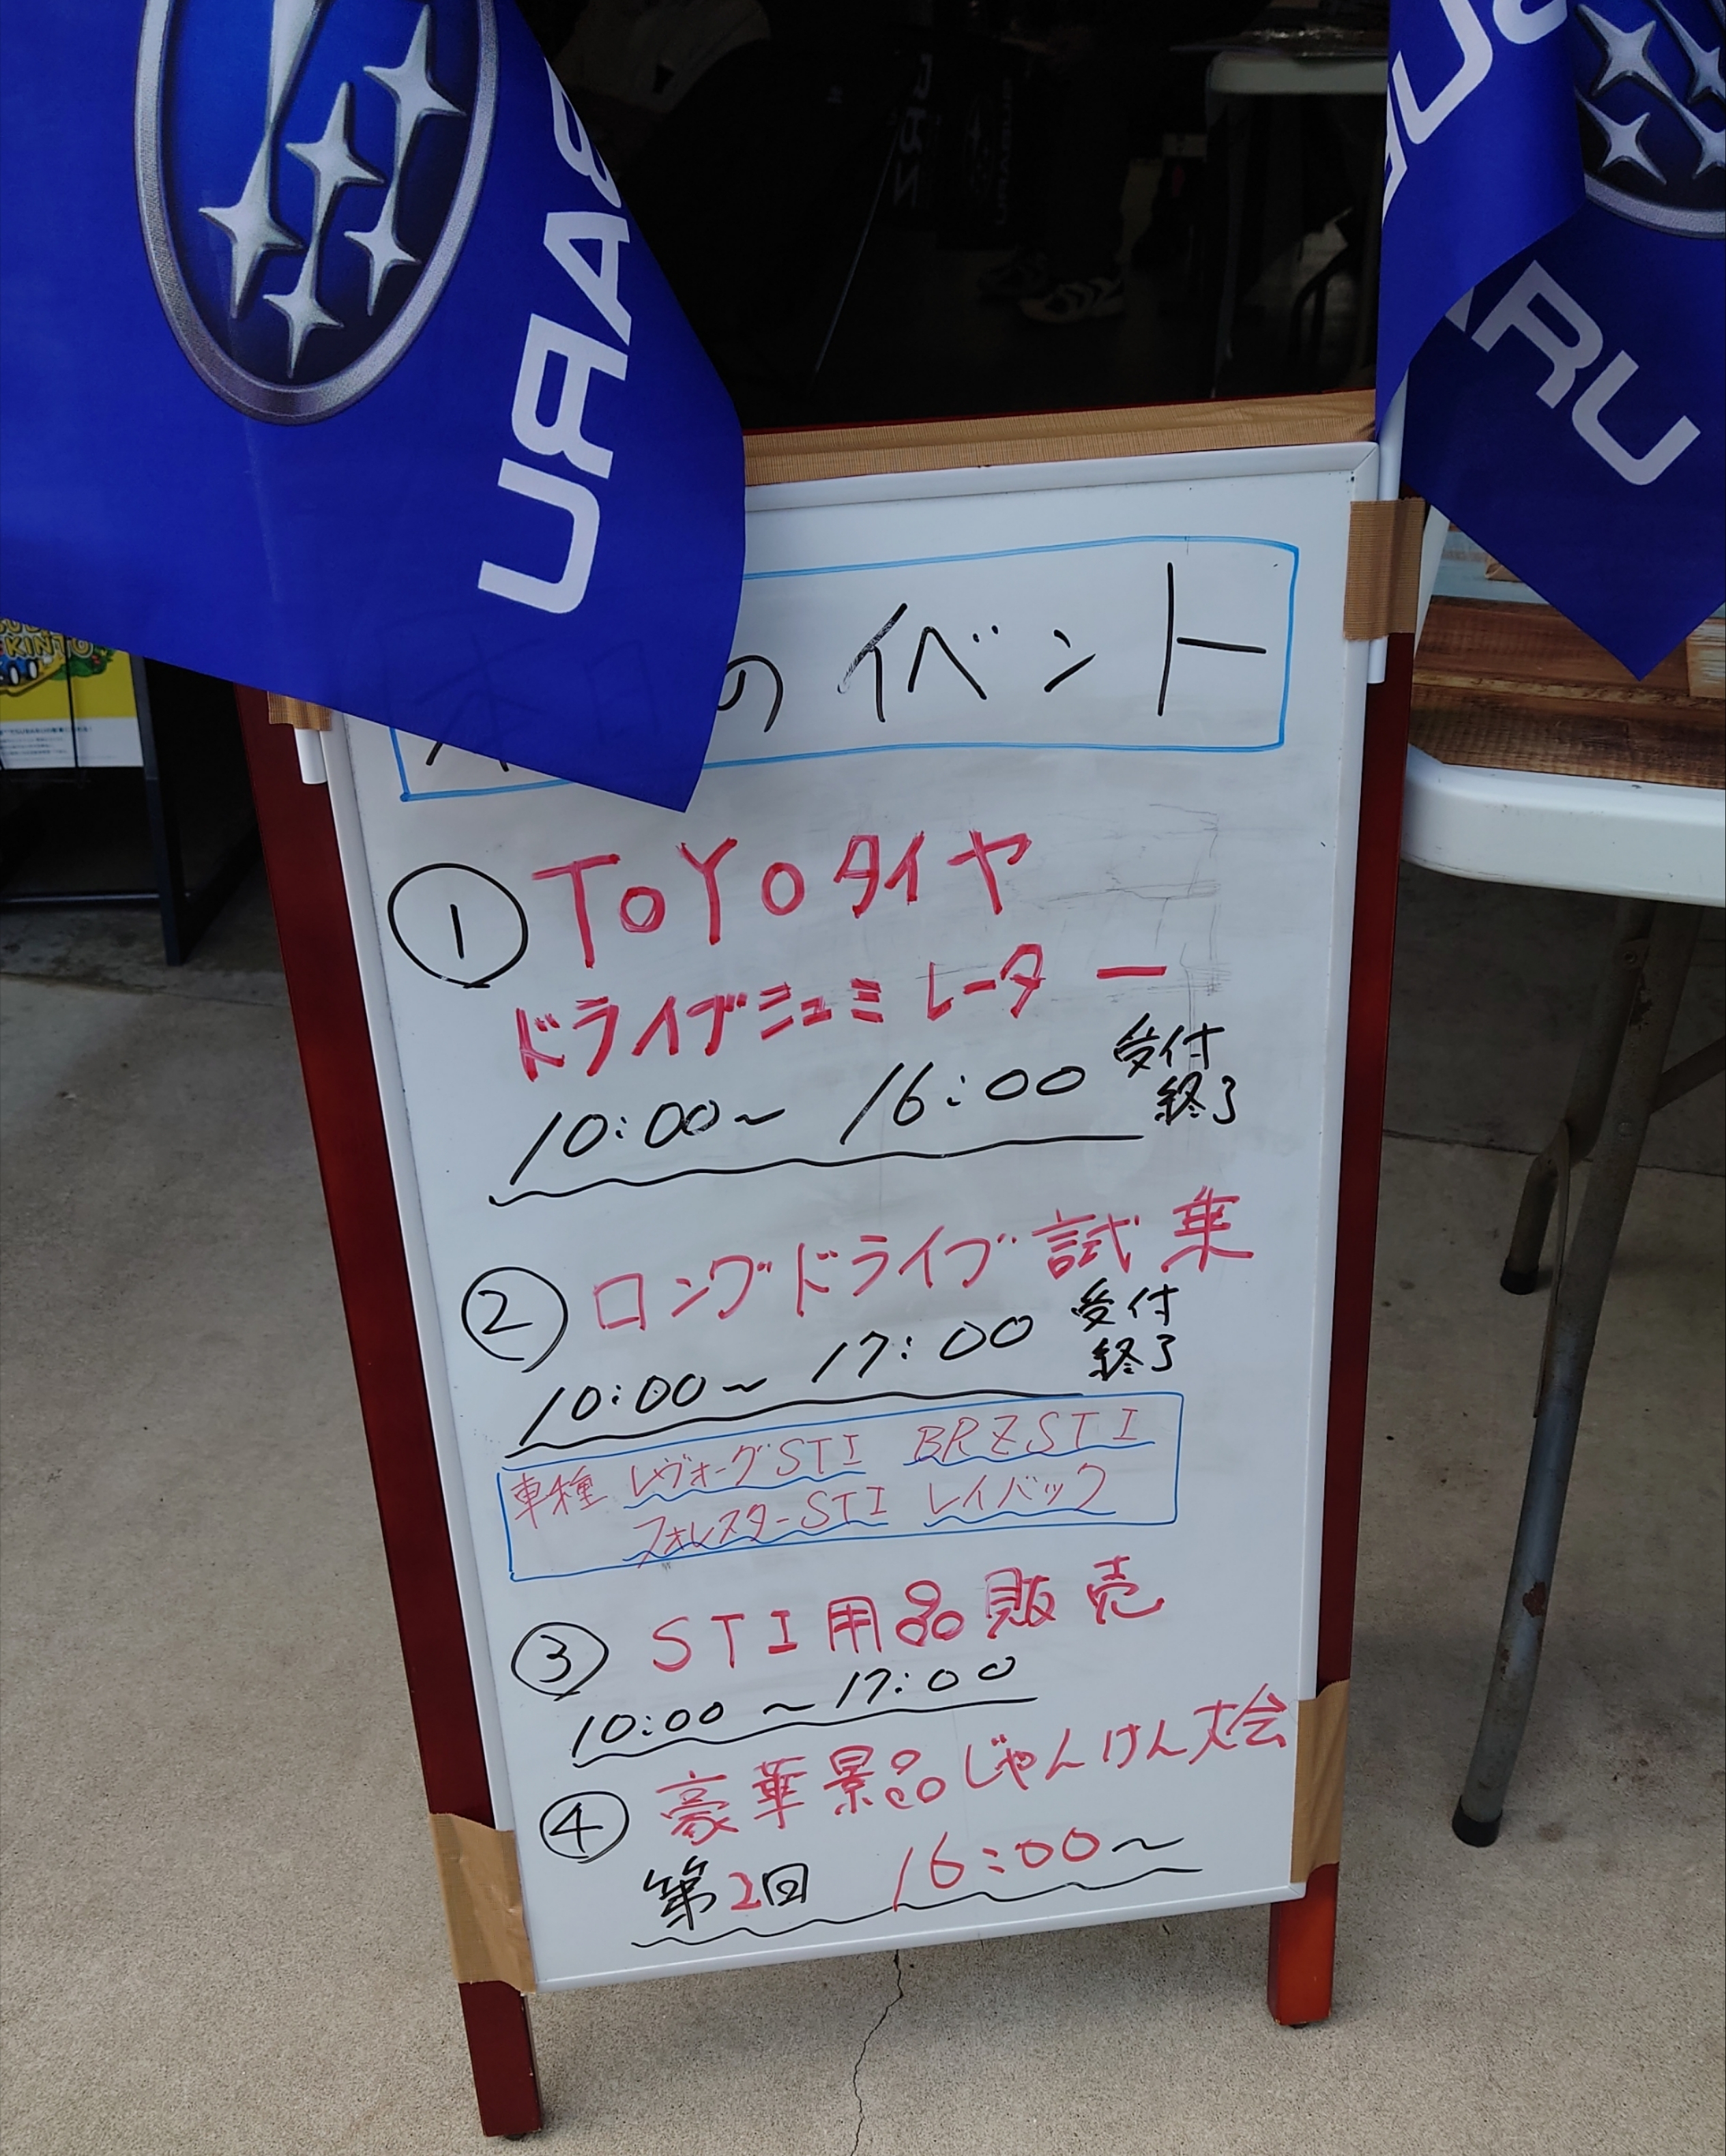 SUBARU
SUBARU
本日のイベント
① TOYOタイヤ
ドライブシュミレーター
10:00~ 16:00 受付
終了
② ロングドライブ試乗
10:00~ 17:00 受付
終了
車種 レヴォーグSTI BRZSTI
フォレスターSTI レイバック
③ STI用品販売
10:00 ~17:00
④ 豪華景品じゃんけん大会
第2回 16:00~
KINTO